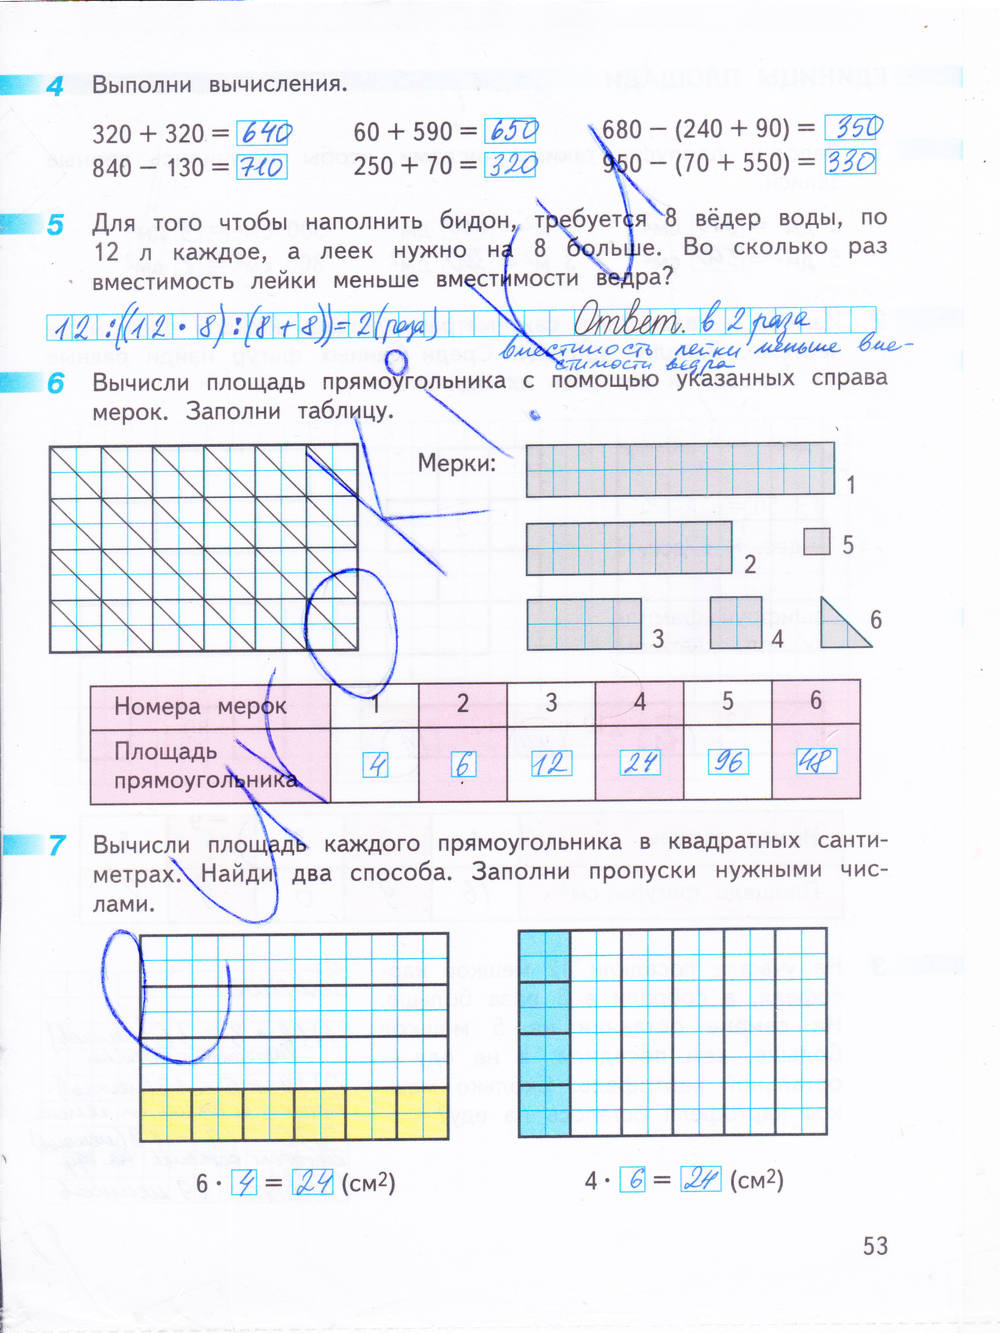 4 Выполни вычисления.
320 + 320 = 640 60 + 590 = 650 680 − (240 + 90) = 350
840 − 130 = 710 250 + 70 = 320 950 − (70 + 550) = 330
5 Для того чтобы наполнить бидон, требуется 8 вёдер воды, по
12 л каждое, а леек нужно на 8 больше. Во сколько раз
вместимость лейки меньше вместимости ведра?
12 : ((12 · 8) : (8 + 8)) = 2 (раза) Ответ. в 2 раза
вместимость лейки меньше вме-
стимости ведра
6 Вычисли площадь прямоугольника с помощью указанных справа
мерок. Заполни таблицу.
Мерки:
1
2
5
3
4
6
Номера мерок 1 2 3 4 5 6
Площадь
прямоугольника 4 6 12 24 96 48
7 Вычисли площадь каждого прямоугольника в квадратных санти-
метрах. Найди два способа. Заполни пропуски нужными чис-
лами.
6 · 4 = 24 (см²) 4 · 6 = 24 (см²)
53